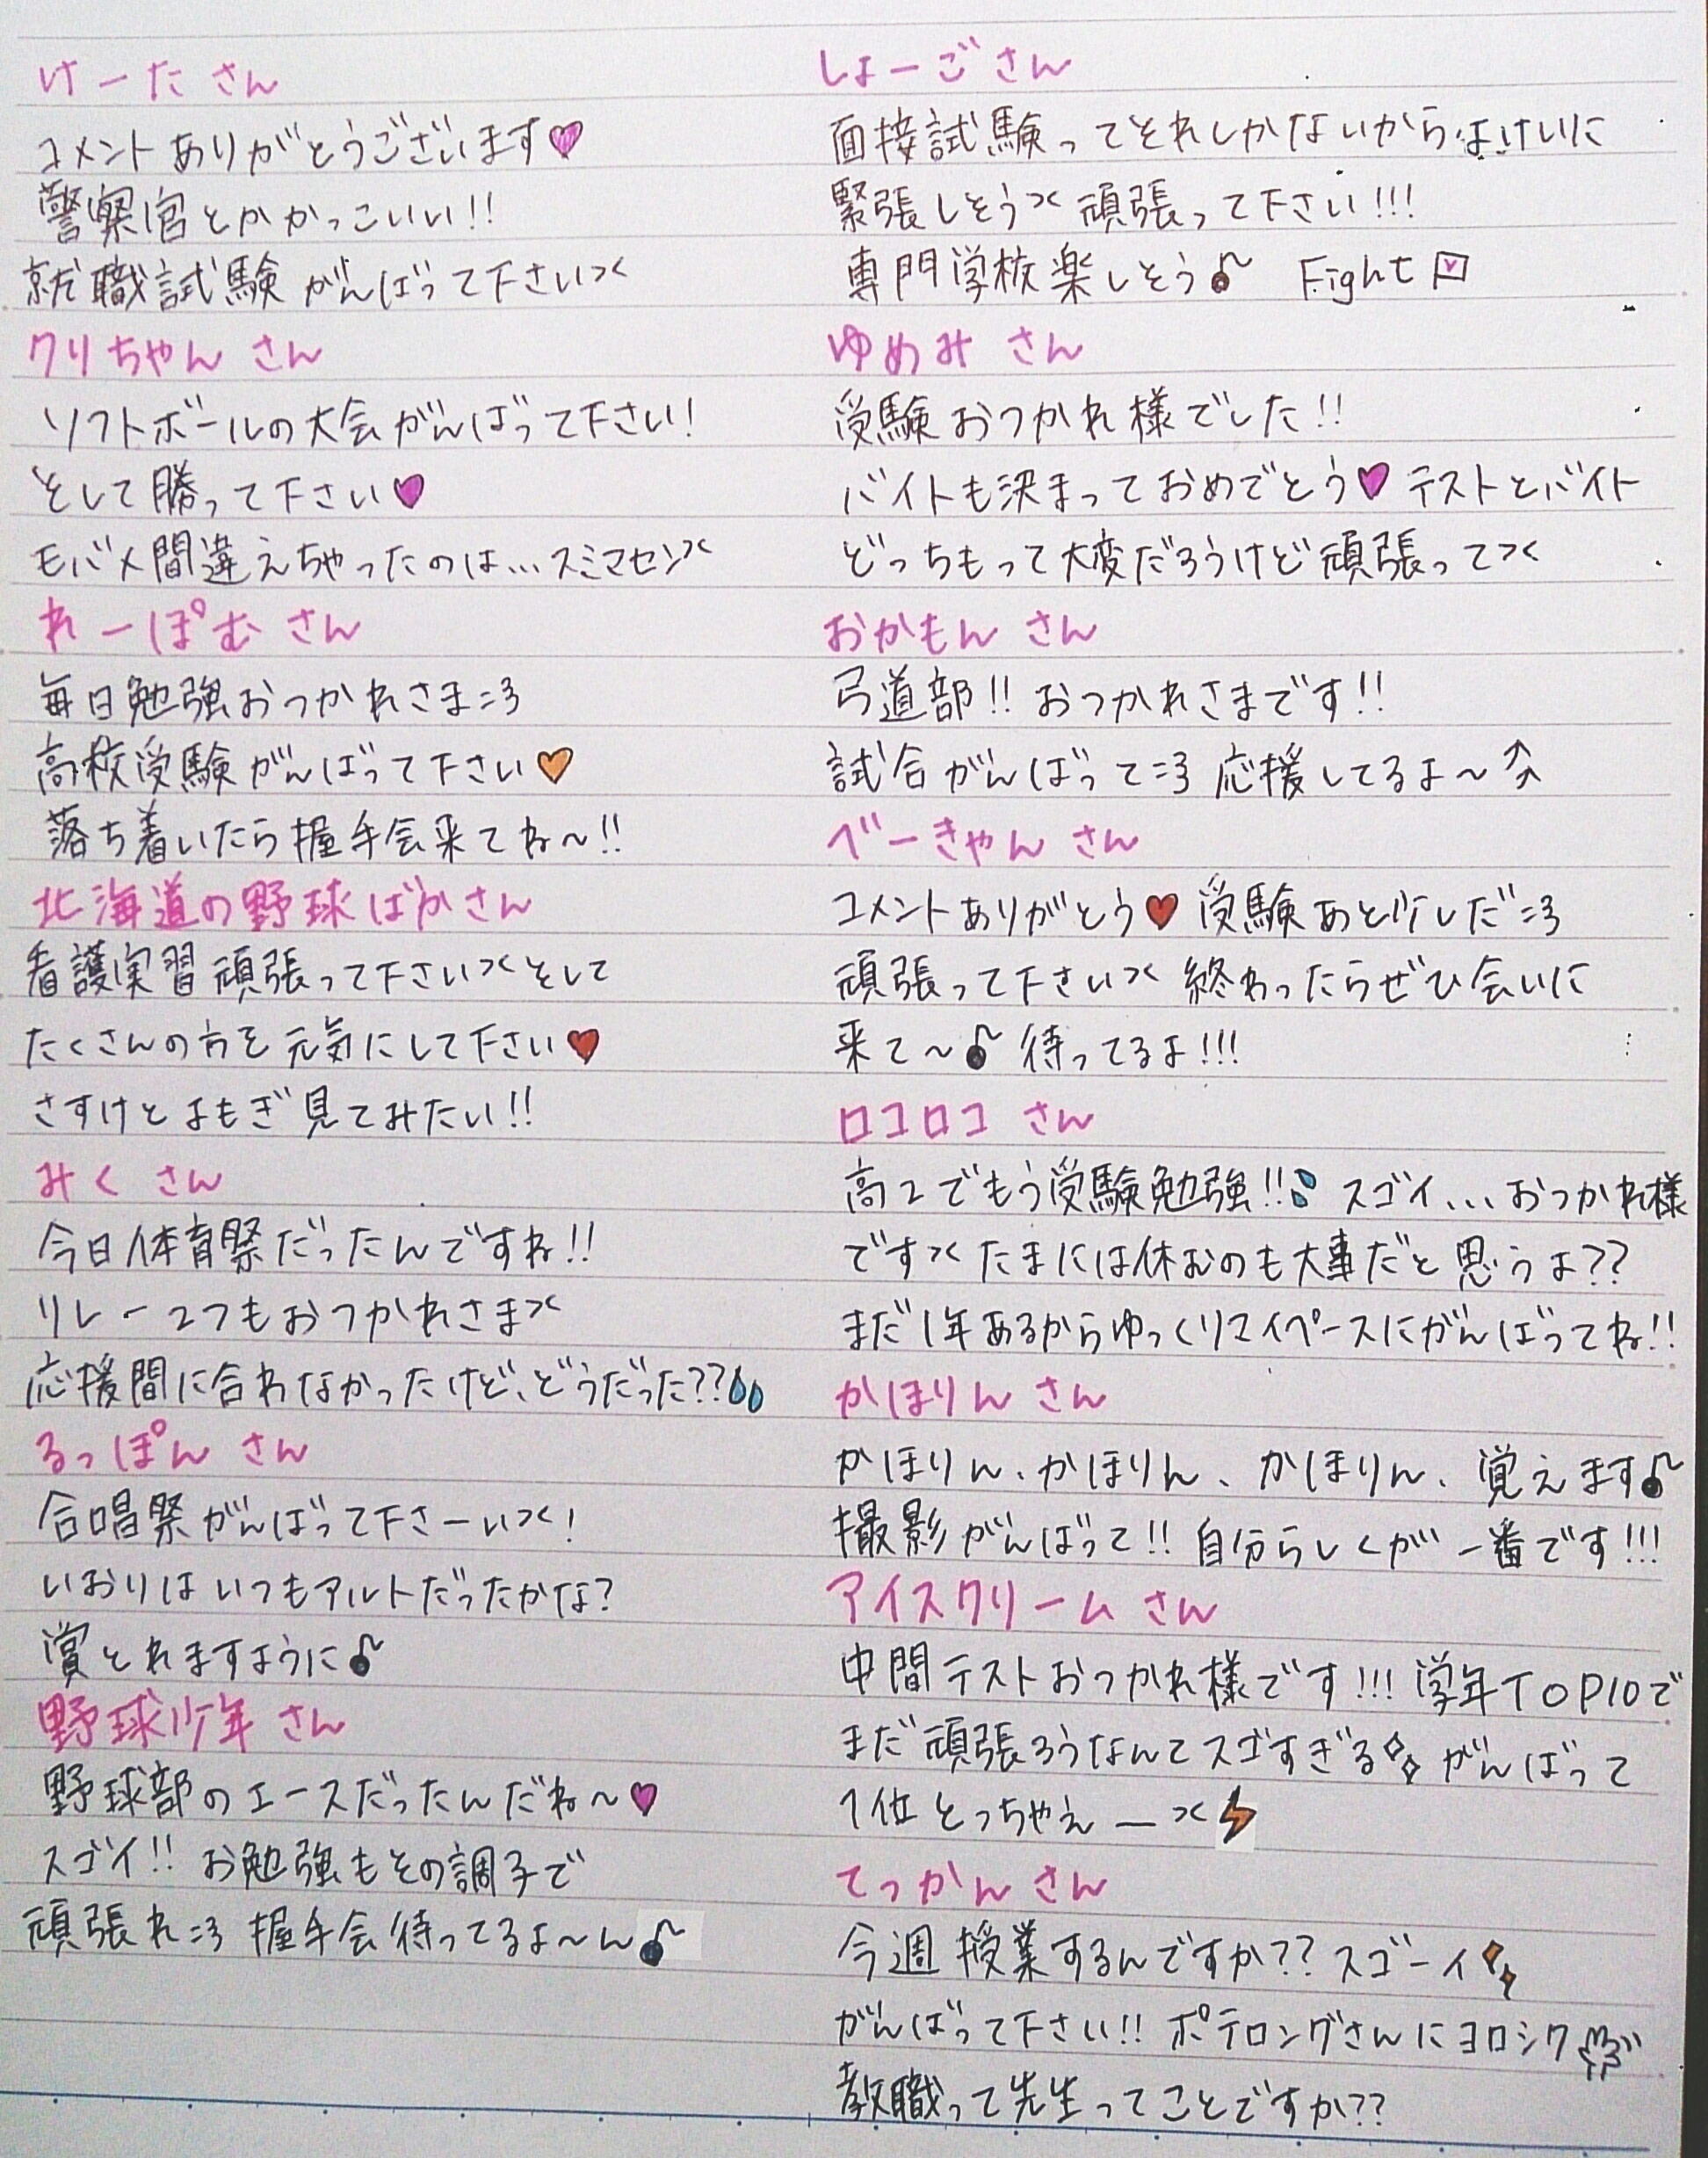 けーたさん
コメントありがとうございます♥
警察官とかかっこいい!!
就職試験がんばって下さい
クリちゃん さん
ソフトボールの大会がんばって下さい!
そして勝って下さい♥
モバメ間違えちゃったのは...スミマセン
れーぽむ さん
毎日勉強おつかれさま
高校受験がんばって下さい♥
落ち着いたら握手会来てね〜!!
北海道の野球ばかさん
看護実習頑張って下さい そして
たくさんの方を元気にして下さい♥
さすけとよもぎ見てみたい!!
みく さん
今日体育祭だったんですね!!
リレー2つもおつかれさま
応援間に合わなかったけど、どうだった??
るっぽん さん
合唱祭がんばって下さーい!
いおりはいつもアルトだったかな?
賞とれますように♪
野球少年 さん
野球部のエースだったんだね〜♥
スゴイ!! お勉強もその調子で
頑張れ 握手会待ってるよ〜ん♪
しょーごさん
面接試験ってそれしかないからよけいに
緊張しそう 頑張って下さい!!!
専門学校楽しそう♪ Fight
ゆめみ さん
受験おつかれ様でした!!
バイトも決まっておめでとう♥ テストとバイト
どっちもって大変だろうけど頑張って
おかもん さん
弓道部!! おつかれさまです!!
試合がんばって 応援してるよ〜
べーきゃん さん
コメントありがとう♥ 受験あと少しだ
頑張って下さい 終わったらぜひ会いに
来て〜♪ 待ってるよ!!!
ロコロコ さん
高2でもう受験勉強!! スゴイ...おつかれ様
です たまには休むのも大事だと思うよ??
まだ1年あるからゆっくりマイペースにがんばってね!!
かほりん さん
かほりん、かほりん、かほりん、覚えます♪
撮影がんばって!! 自分らしくが一番です!!!
アイスクリーム さん
中間テストおつかれ様です!!! 学年TOP10で
まだ頑張ろうなんてスゴすぎる がんばって
1位とっちゃえー
てっかん さん
今週授業するんですか?? スゴーイ
がんばって下さい!! ポテロングさんにヨロシク
教職って先生ってことですか??